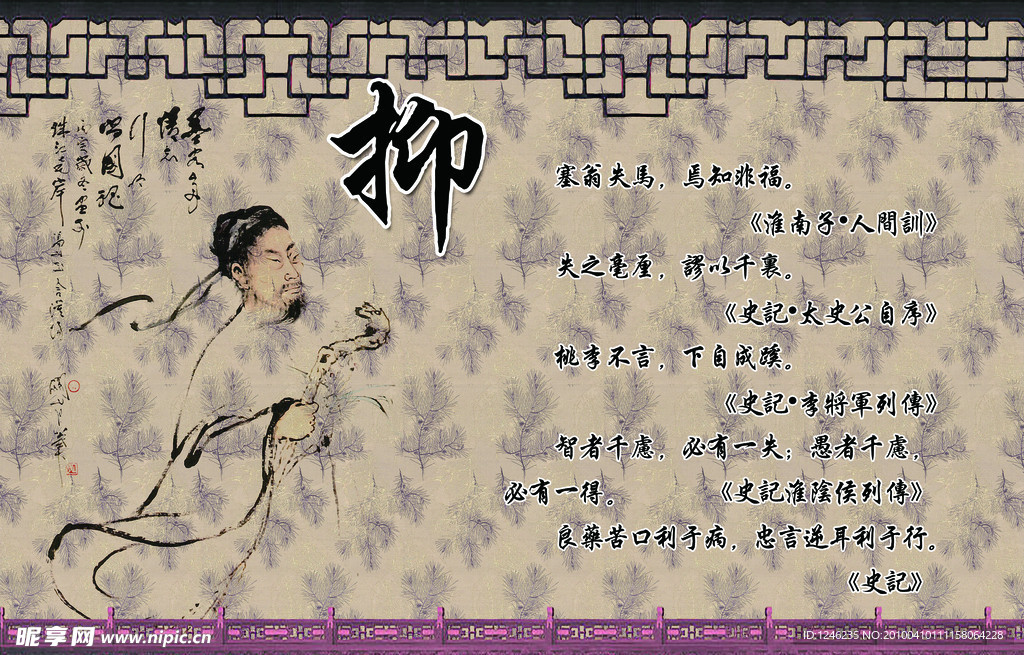 抑
塞翁失馬，焉知非福。
《淮南子•人間訓》
失之毫厘，謬以千裏。
《史記•太史公自序》
桃李不言，下自成蹊。
《史記•李將軍列傳》
智者千慮，必有一失；愚者千慮，
必有一得。 《史記淮陰侯列傳》
良藥苦口利于病，忠言逆耳利于行。
《史記》
昵享网 www.nipic.cn
ID:1246235 NO:20100410111158064228